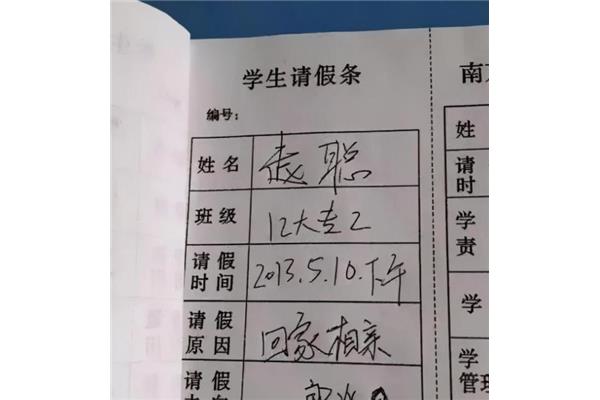 学生请假条
编号：
姓名 聪
班级 12大专2
请假时间 2013.5.10.下午
请假原因 回家相亲
请假
南
姓
请
时
学
责
学
学
管理